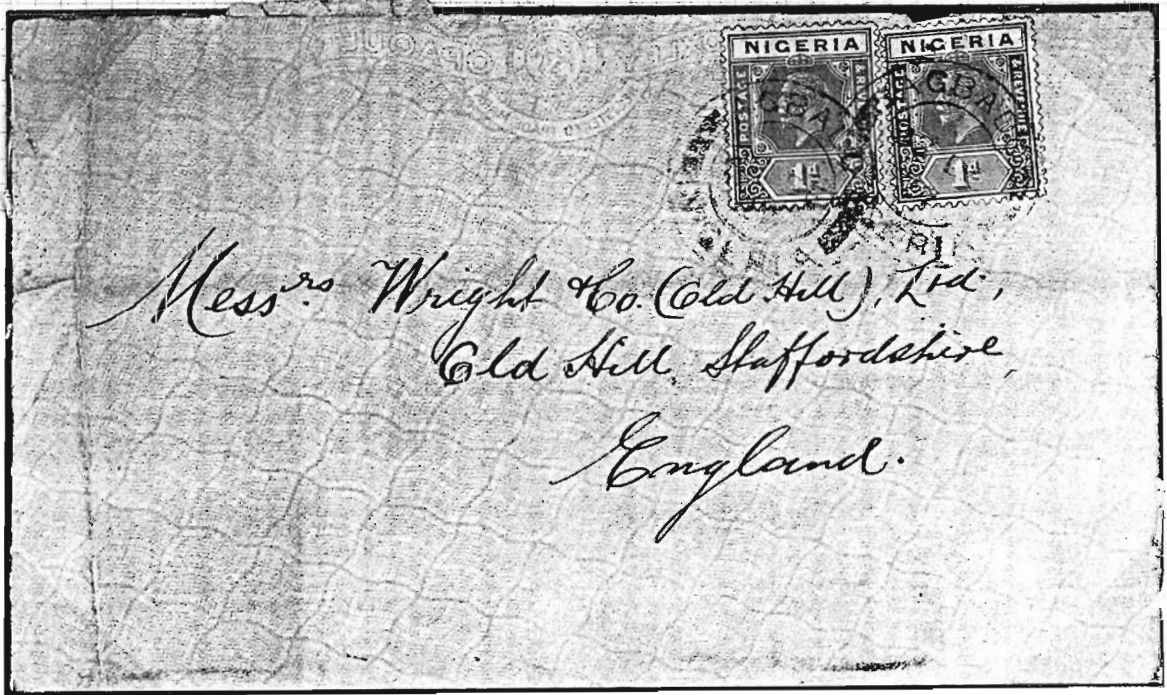 NIGERIA NIGERIA
POSTAGE & REVENUE POSTAGE & REVENUE
1d 1d
Messrs Wright & Co. (Old Hill), Ltd.,
Old Hill, Staffordshire,
England.